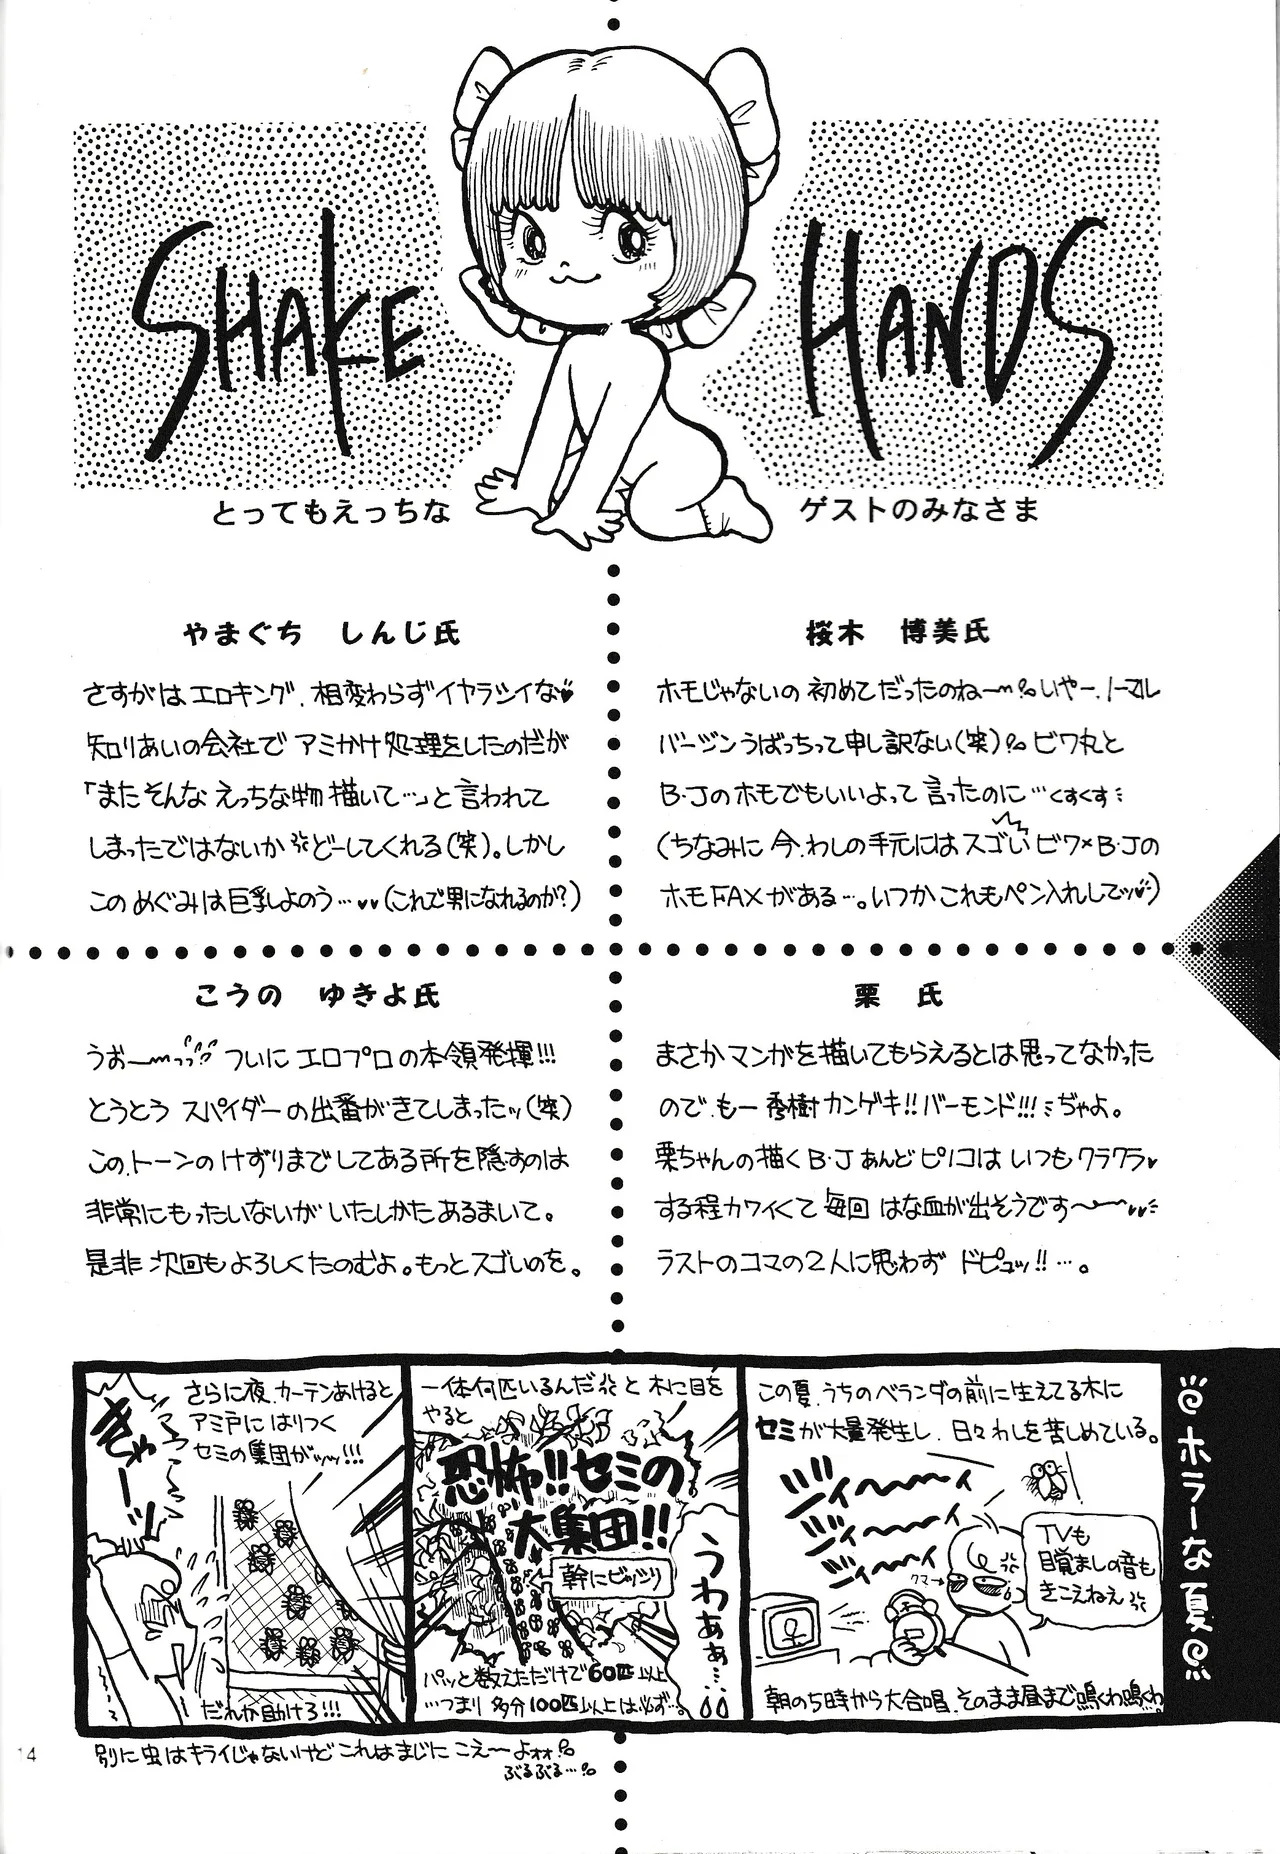 SHAKE HANDS
とってもえっちな
ゲストのみなさま
やまぐち　しんじ氏
さすがはエロキング、相変わらずイヤラシイな♥
知りあいの会社でアミかけ処理をしたのだが
「またそんなえっちな物描いて…」と言われて
しまったではないか どーしてくれる(笑)。しかし
このめぐみは巨乳よのう…♥♥(これで男になれるのか?)
桜木　博美氏
ホモじゃないの初めてだったのね〜 いやー、ノーマル
バージンうばっちって申し訳ない(笑) ビワ丸と
B・Jのホモでもいいよって言ったのに…くすくす
(ちなみに今、わしの手元にはスゴいビワ×B・Jの
ホモFAXがある…。いつかこれもペン入れしてッ♥)
こうの　ゆきよ氏
うお〜っっ ついにエロプロの本領発揮!!!
とうとうスパイダーの出番がきてしまったッ(笑)
この、トーンのけずりまでしてある所を隠すのは
非常にもったいないが いたしかたあるまいて。
是非次回もよろしくたのむよ。もっとスゴいのを。
栗　氏
まさかマンガを描いてもらえるとは思ってなかった
ので、もー秀樹カンゲキ!!バーモンド!!!ぢゃよ。
栗ちゃんの描くB・Jあんどピノコはいつもクラクラ♥
する程カワイくて毎回はな血が出そうです〜♥♥
ラストのコマの2人に思わずドピュッ!!…。
ホラーな夏
この夏、うちのベランダの前に生えてる木に
セミが大量発生し、日々わしを苦しめている。
ヅィ〜〜〜ィ
ヅィ〜〜〜ィ
ヅィ〜〜〜ィ
クマ→
TVも
目覚ましの音も
きこえねぇ
朝の5時から大合唱、そのまま昼まで鳴くわ鳴くわ。
一体何匹いるんだ と木に目を
やると
恐怖!!セミの
大集団!!
幹にビッシリ
うわぁぁ…
パッと数えただけで60匹以上
…つまり多分100匹以上は必ず…。
さらに夜、カーテンあけると
アミ戸にはりつく
セミの集団がッッ!!!
きゃーッ
だれか助けろ!!!
別に虫はキライじゃないけどこれはまじにこえーよォォ
ぶるぶる…
14